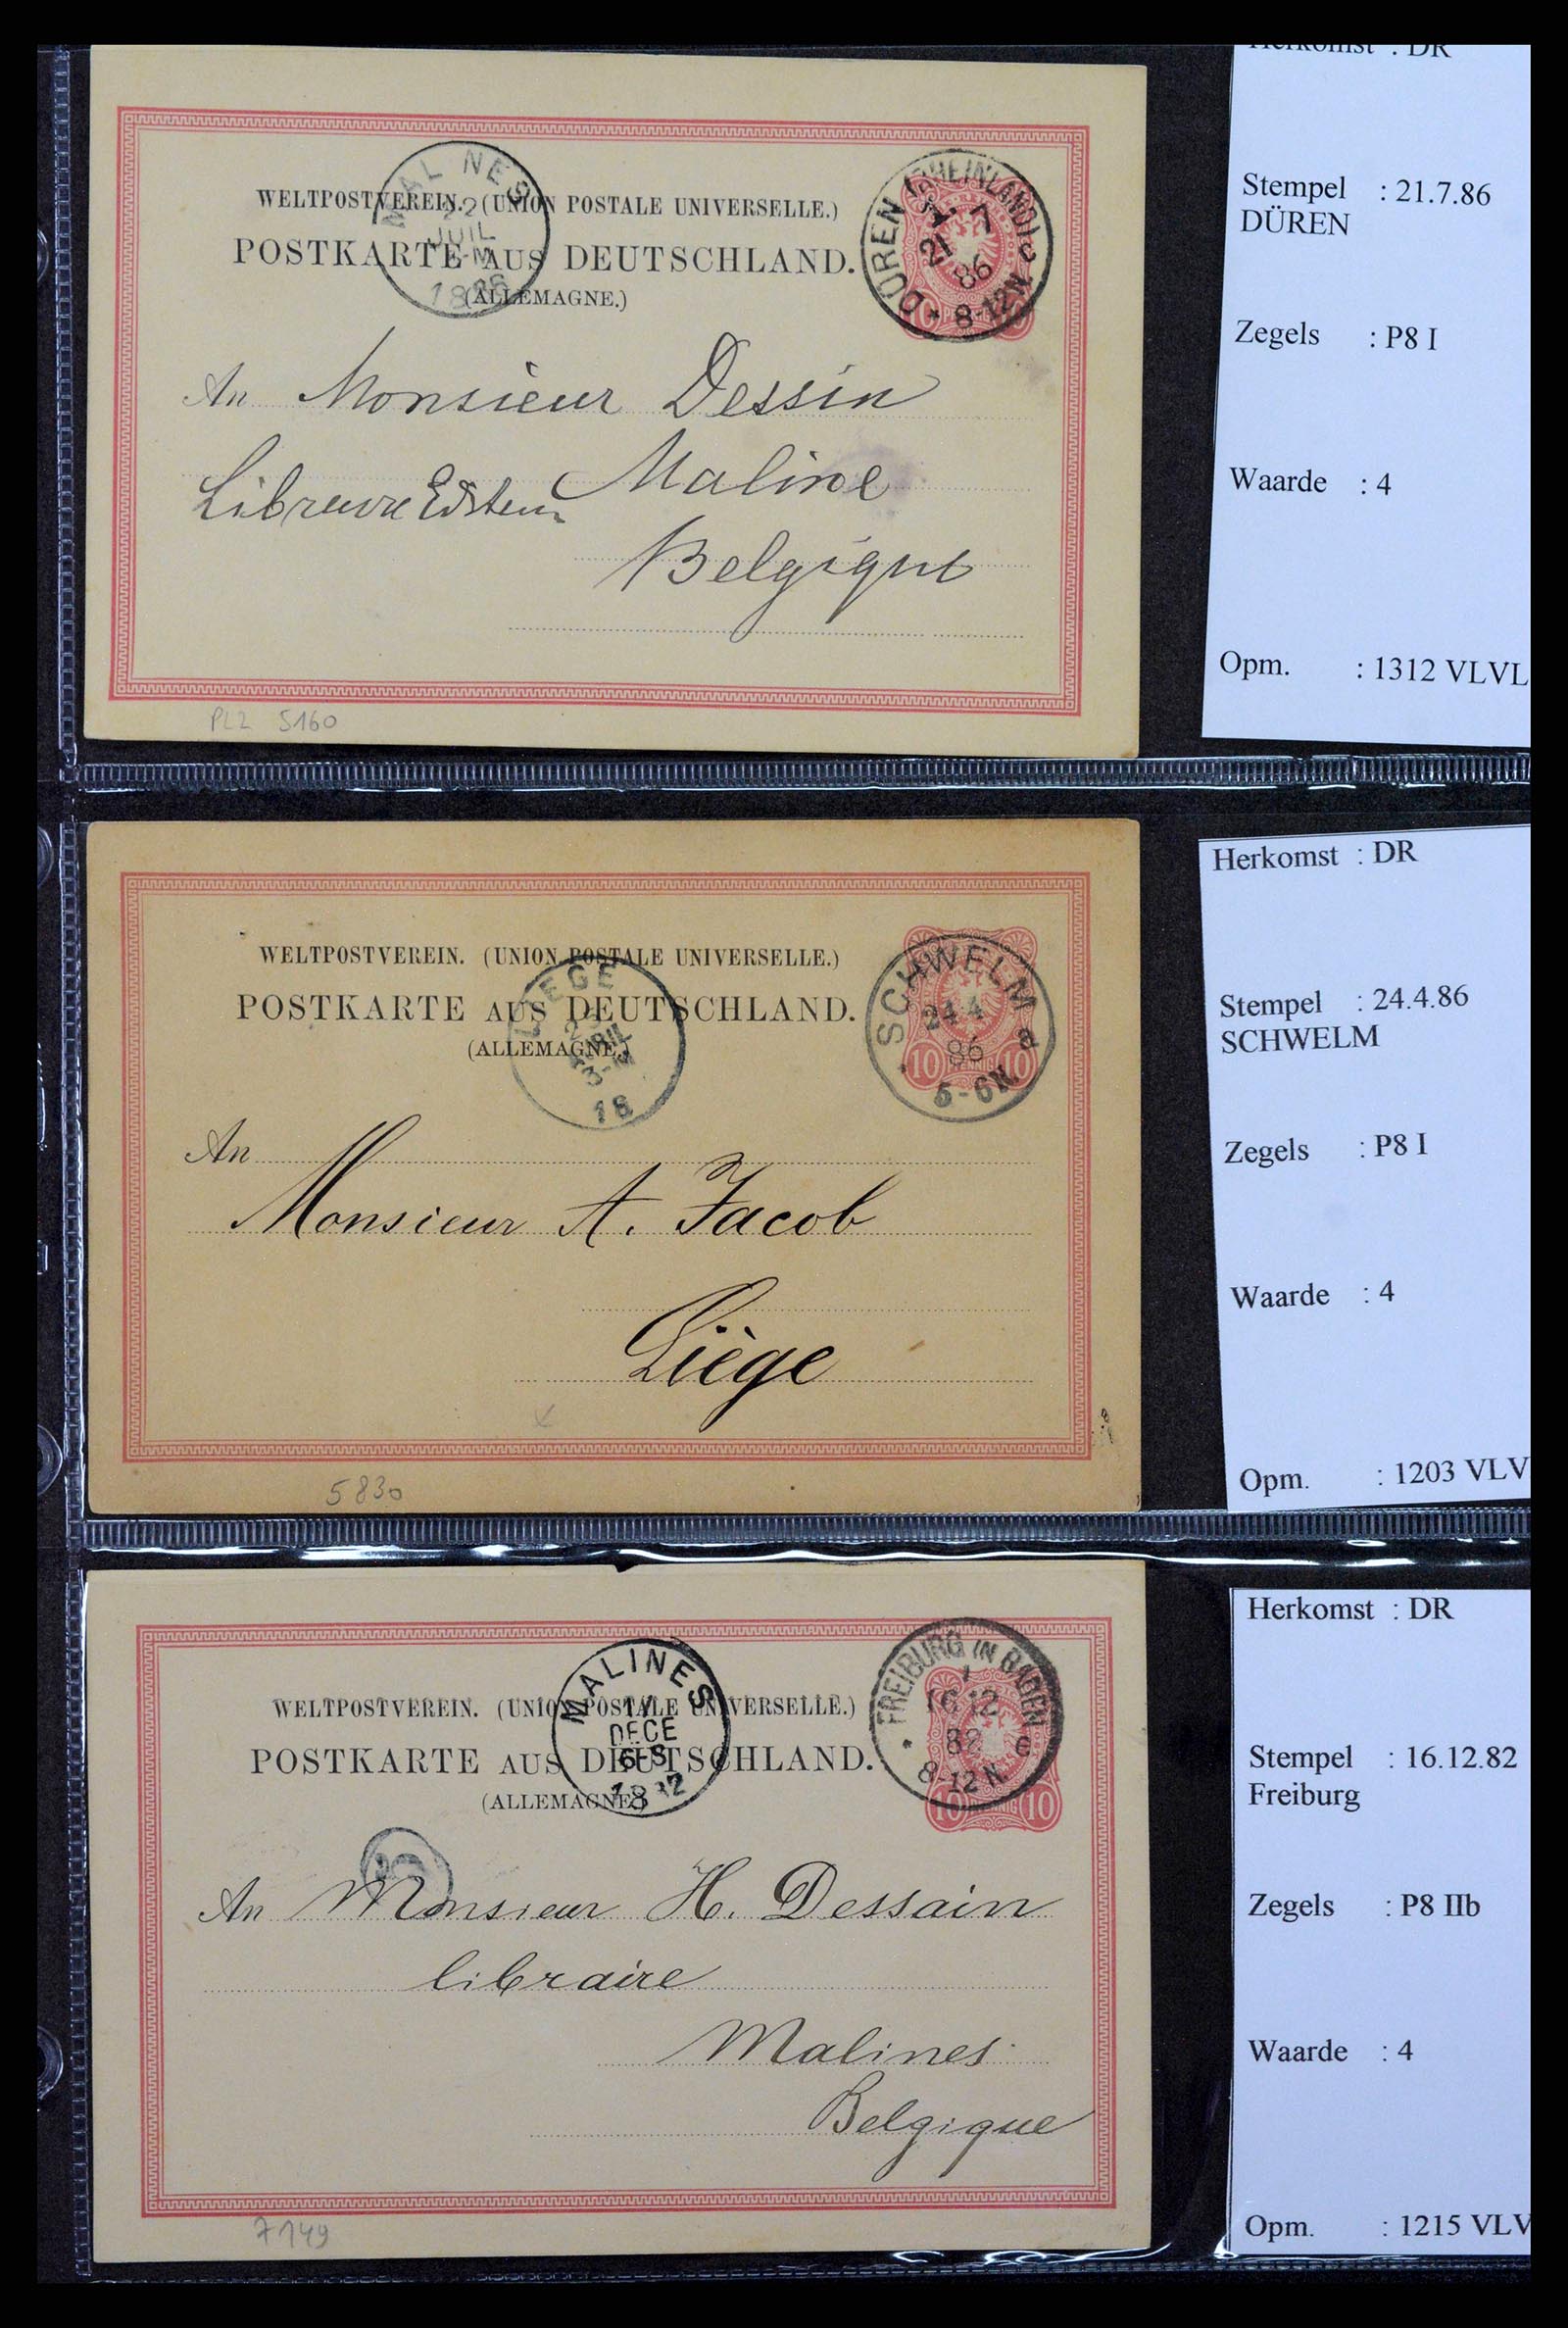 Herkomst : DR
WELTPOSTVEREIN. (UNION POSTALE UNIVERSELLE.)
POSTKARTE AUS DEUTSCHLAND.
(ALLEMAGNE.)
MALINES
22
JUIL
1886
DÜREN (RHEINLAND) c
21 7
86
8-12N.
10 10
An Monsieur Dessin
Maline
Belgique
PLZ 5160
Stempel : 21.7.86
DÜREN
Zegels : P8 I
Waarde : 4
Opm. : 1312 VLVL
WELTPOSTVEREIN. (UNION POSTALE UNIVERSELLE.)
POSTKARTE AUS DEUTSCHLAND.
(ALLEMAGNE.)
LIEGE
AVRIL
3-M
18
SCHWELM a
24 4
86
5-6N.
10 PFENNIG 10
An
Monsieur A. Jacob
Liège
5830
Herkomst : DR
Stempel : 24.4.86
SCHWELM
Zegels : P8 I
Waarde : 4
Opm. : 1203 VLV
WELTPOSTVEREIN. (UNION POSTALE UNIVERSELLE.)
POSTKARTE AUS DEUTSCHLAND.
(ALLEMAGNE.)
MALINES
17
DECE
6-S
1882
FREIBURG IN BADEN
1
16 12
82 e
8-12 N.
10 PFENNIG 10
An Monsieur H. Dessain
libraire
Malines
Belgique
7149
Herkomst : DR
Stempel : 16.12.82
Freiburg
Zegels : P8 IIb
Waarde : 4
Opm. : 1215 VLV